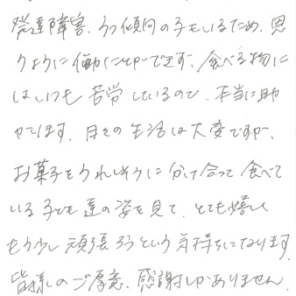 発達障害、うつ傾向の子もいるため、思
うように働くことができず、食べる物に
はいつも苦労しているので、本当に助
かってます。日々の生活は大変ですが、
お菓子をうれしそうに分け合って食べて
いる子ども達の姿を見て、とても嬉しく
もう少し頑張ろうという気持ちになります。
皆様のご厚意、感謝しかありません。